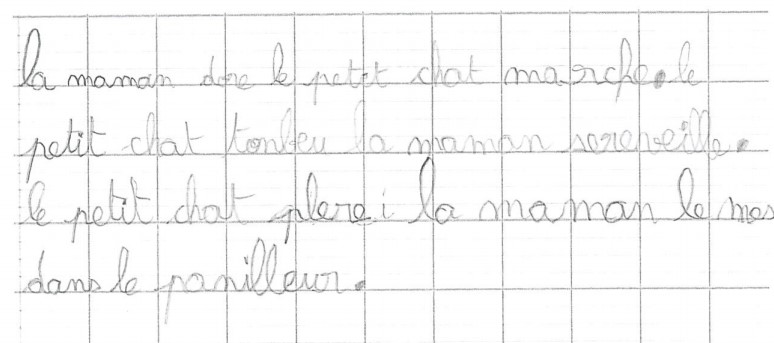 la maman dore le petit chat marche. le
petit chat tonbeu la maman sereveille.
le petit chat plere i la maman le mes
dans le panilleur.